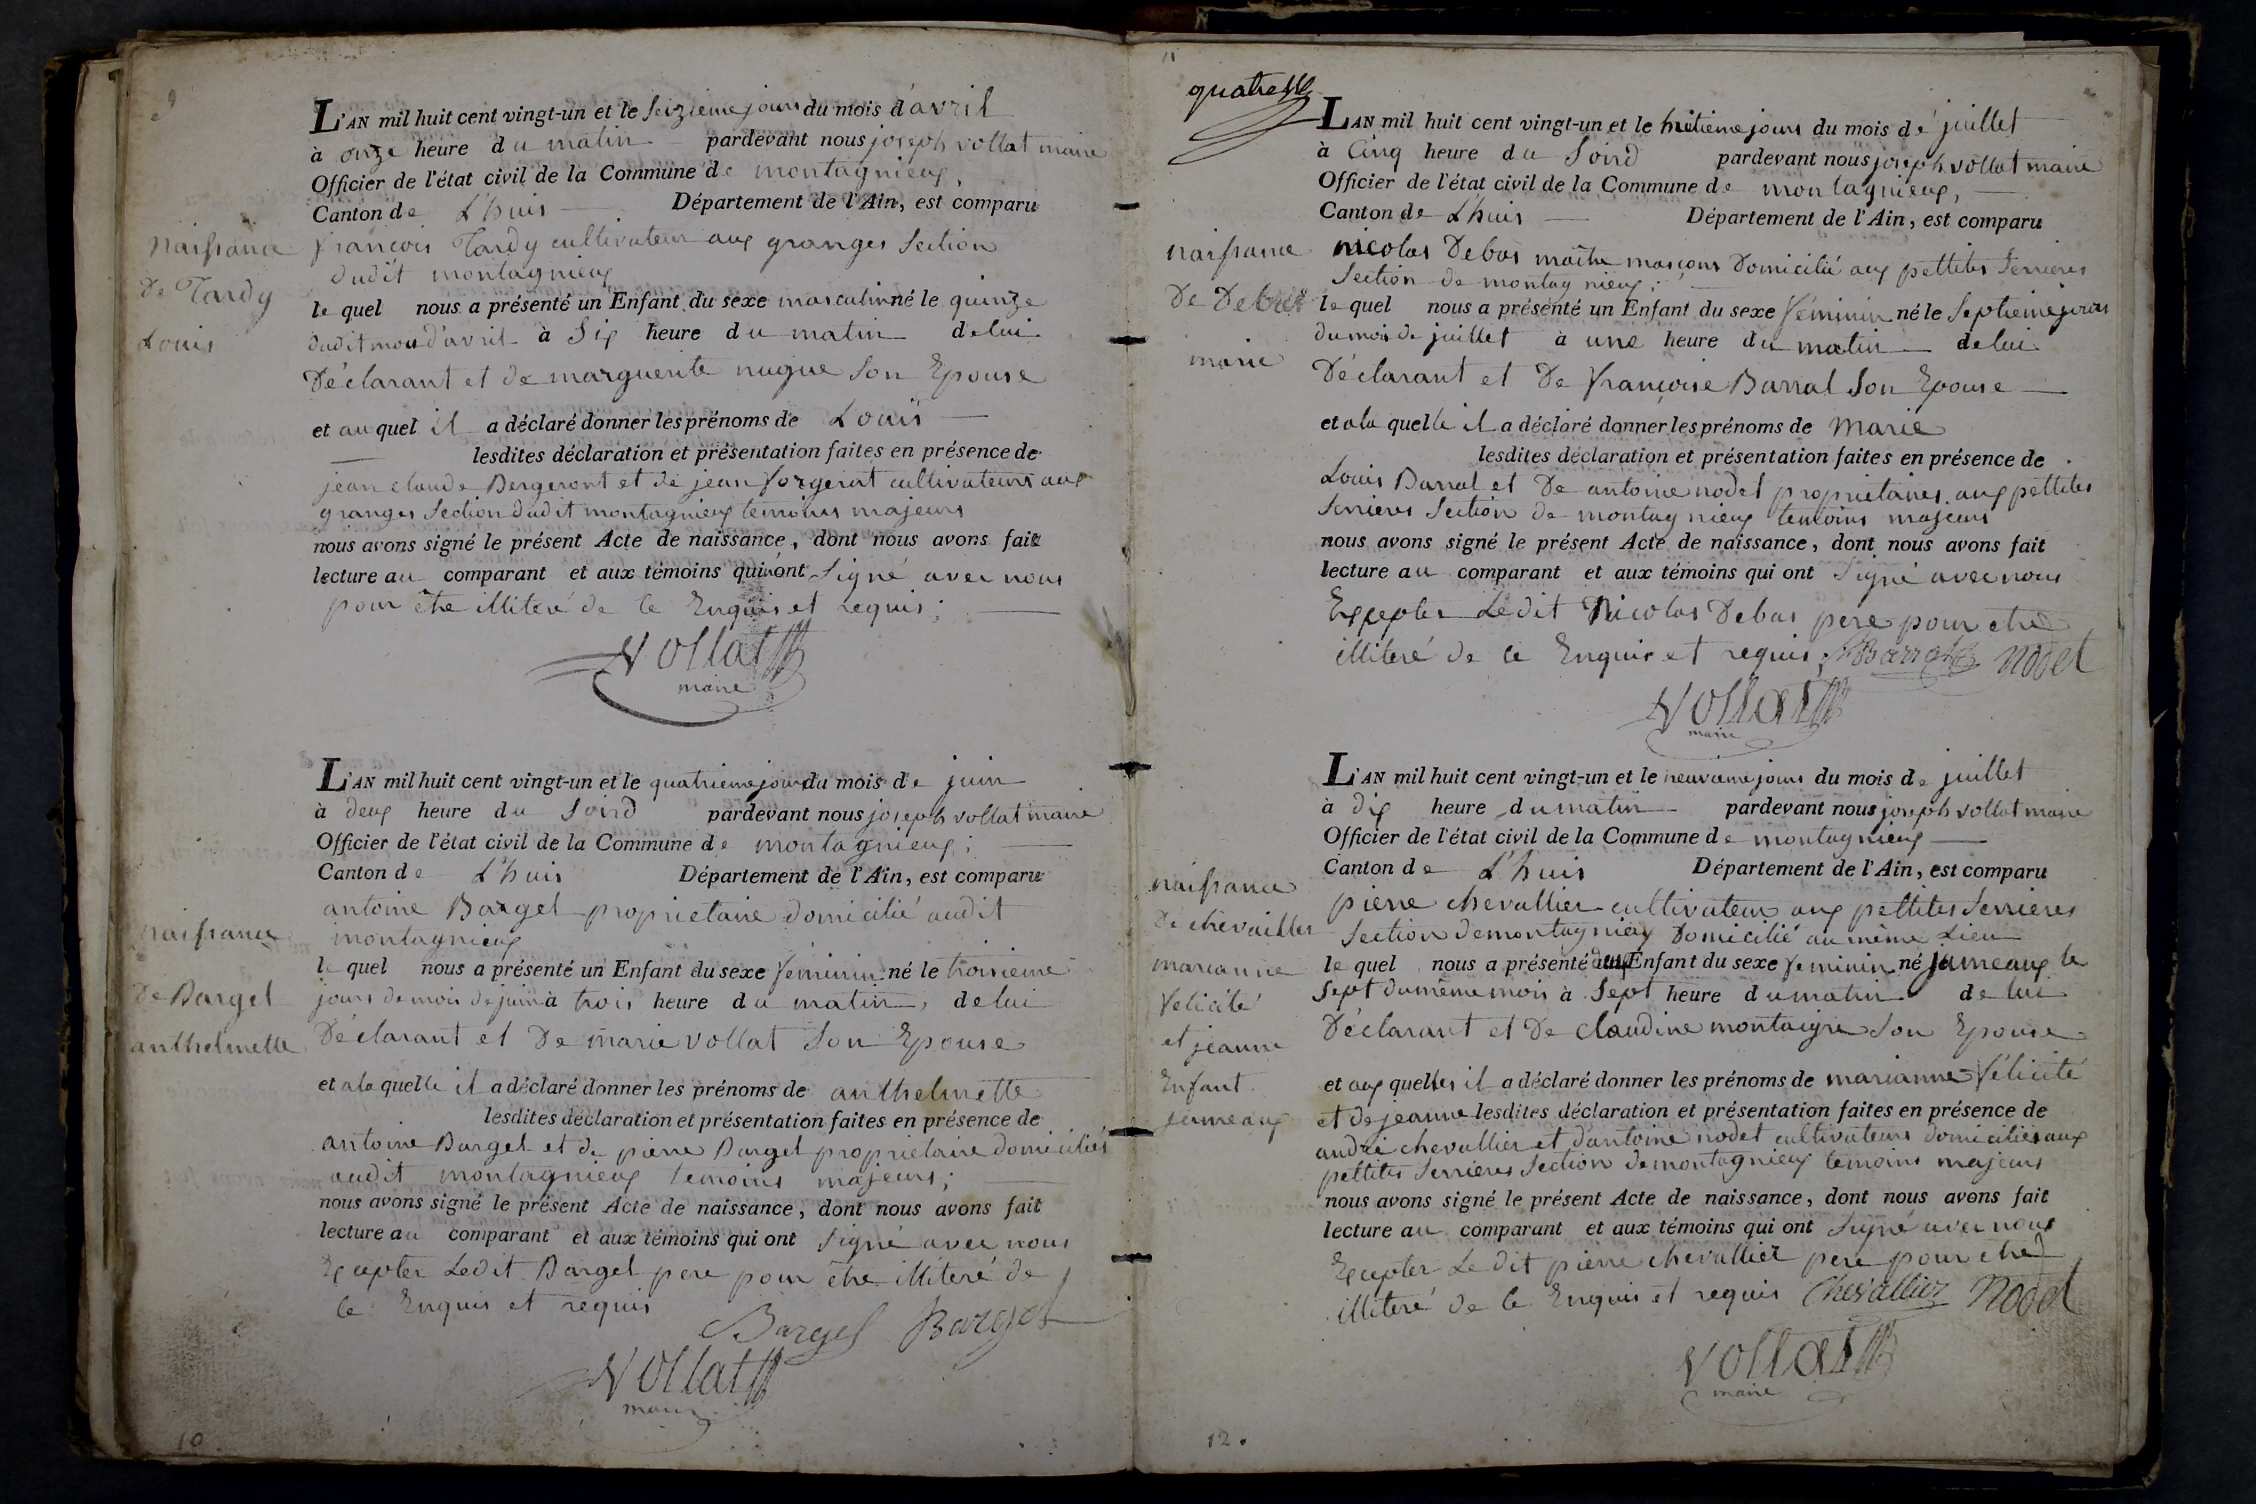 9
L'AN mil huit cent vingt-un et le Seizieme jours du mois d'avril
à onze heure du matin pardevant nous joseph vollat maire
Officier de l'état civil de la Commune de montagnieux,
Canton de L'huis Département de l'Ain, est comparu
françois Tardy cultivateur aux granges Section
dudit montagnieux
le quel nous a présenté un Enfant du sexe masculin né le quinze
dudit mois d'avril à Six heure du matin de lui
Déclarant et de marguerite nugue Son Epouse
et au quel il a déclaré donner les prénoms de Louis
lesdites déclaration et présentation faites en présence de
jean claude Bergeront et de jean Vorgerat cultivateurs aux
granges Section dudit montagnieux temoins majeurs
nous avons signé le présent Acte de naissance, dont nous avons fait
lecture au comparant et aux témoins qui ont Signé avec nous
pour être illiteré de ce Enquis et requis;
Vollat
maire
naissance
De Tardy
Louis
L'AN mil huit cent vingt-un et le quatrieme jour du mois de juin
à deux heure du Soird pardevant nous joseph vollat maire
Officier de l'état civil de la Commune de montagnieux;
Canton de L'huis Département de l'Ain, est comparu
antoine Bargel proprietaire domicilié audit
montagnieux
le quel nous a présenté un Enfant du sexe féminin né le troisieme
jours de mois de juin à trois heure du matin, de lui
Déclarant et De marie vollat Son Epouse
et a la quelle il a déclaré donner les prénoms de anthelmette
lesdites déclaration et présentation faites en présence de
antoine Bargel et de pierre Bargel proprietaire domiciliés
audit montagnieux temoins majeurs;
nous avons signé le présent Acte de naissance, dont nous avons fait
lecture au comparant et aux témoins qui ont Signé avec nous
Excepter Ledit Bargel pere pour être illiteré de
ce Enquis et requis
Bargel Bargel
Vollat
maire
naissance
De Bargel
anthelmette
10
11
quatre
L'AN mil huit cent vingt-un et le huitieme jours du mois de juillet
à Cinq heure du Soird pardevant nous joseph vollat maire
Officier de l'état civil de la Commune de montagnieux,
Canton de L'huis Département de l'Ain, est comparu
nicolas Debas maitre maçons Domicilié aux pettites Serrieres
Section de montagnieux;
le quel nous a présenté un Enfant du sexe féminin né le Septieme jours
du mois de juillet à une heure du matin de lui
Déclarant et De françoise Barral Son Epouse
et a la quelle il a déclaré donner les prénoms de Marie
lesdites déclaration et présentation faites en présence de
Louis Barral et De antoine nodet proprietaires aux pettites
Serrieres Section de montagnieux temoins majeurs
nous avons signé le présent Acte de naissance, dont nous avons fait
lecture au comparant et aux témoins qui ont Signé avec nous
Excepter Ledit Nicolas Debas pere pour etre
illiteré de ce Enquis et requis; Barral nodet
Vollat
maire
naissance
De Debas
marie
L'AN mil huit cent vingt-un et le neuvieme jours du mois de juillet
à dix heure du matin pardevant nous joseph vollat maire
Officier de l'état civil de la Commune de montagnieux
Canton de L'huis Département de l'Ain, est comparu
pierre chevallier cultivateur aux pettites Serrieres
Section de montagnieux Domicilié au même Lieu
le quel nous a présenté deux Enfant du sexe feminin né jumeaux le
Sept du même mois à Sept heure du matin de lui
Déclarant et De claudine montaigre Son Epouse
et aux quelles il a déclaré donner les prénoms de marianne félicité
et de jeanne lesdites déclaration et présentation faites en présence de
andré chevallier et d'antoine nodet cultivateurs domiciliés aux
pettites Serrieres Section de montagnieux temoins majeurs
nous avons signé le présent Acte de naissance, dont nous avons fait
lecture au comparant et aux témoins qui ont Signé avec nous
Excepter Le dit pierre chevallier pere pour etre
illiteré de ce Enquis et requis Chevallier Nodet
Vollat
maire
naissance
De chevallier
marianne
felicité
et jeanne
Enfant
Jumeaux
12.